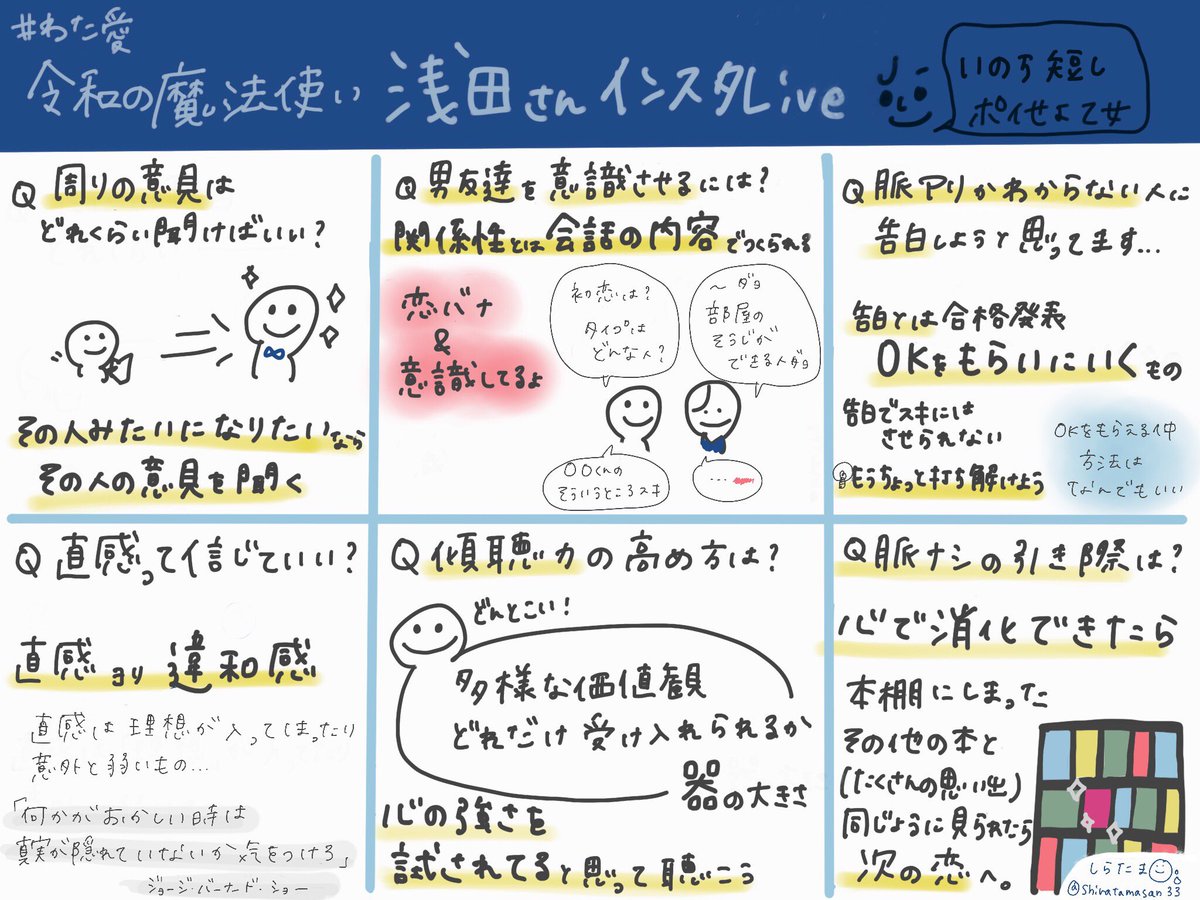 #わた愛
令和の魔法使い 浅田さん インスタLive
いのち短し
ポイせよ乙女
Q 周りの意見は
どれくらい聞けばいい?
その人みたいになりたいなら
その人の意見を聞く
Q 男友達を意識させるには?
関係性とは会話の内容でつくられる
恋バナ
&
意識してるよ
初恋は?
タイプは
どんな人?
〜ダヨ
部屋の
そうじが
できる人ダヨ
〇〇くんの
そういうところスキ
...
Q 脈アリかわからない人に
告白しようと思ってます...
告白とは合格発表
OKをもらいにいくもの
告白でスキには
させられない
もうちょっと打ち解けよう
OKをもらえる仲
方法は
なんでもいい
Q 直感って信じていい?
直感ヨリ違和感
直感は理想が入ってしまったり
意外と弱いもの...
「何かがおかしい時は
真実が隠れていないか気をつけろ」
ジョージ・バーナード・ショー
Q 傾聴力の高め方は?
どんとこい!
多様な価値観
どれだけ受け入れられるか
器の大きさ
心の強さを
試されてると思って聴こう
Q 脈ナシの引き際は?
心で消化できたら
本棚にしまった
その他の本と
(たくさんの思い出)
同じように見られたら
次の恋へ。
しらたま
@Shiratamasan33